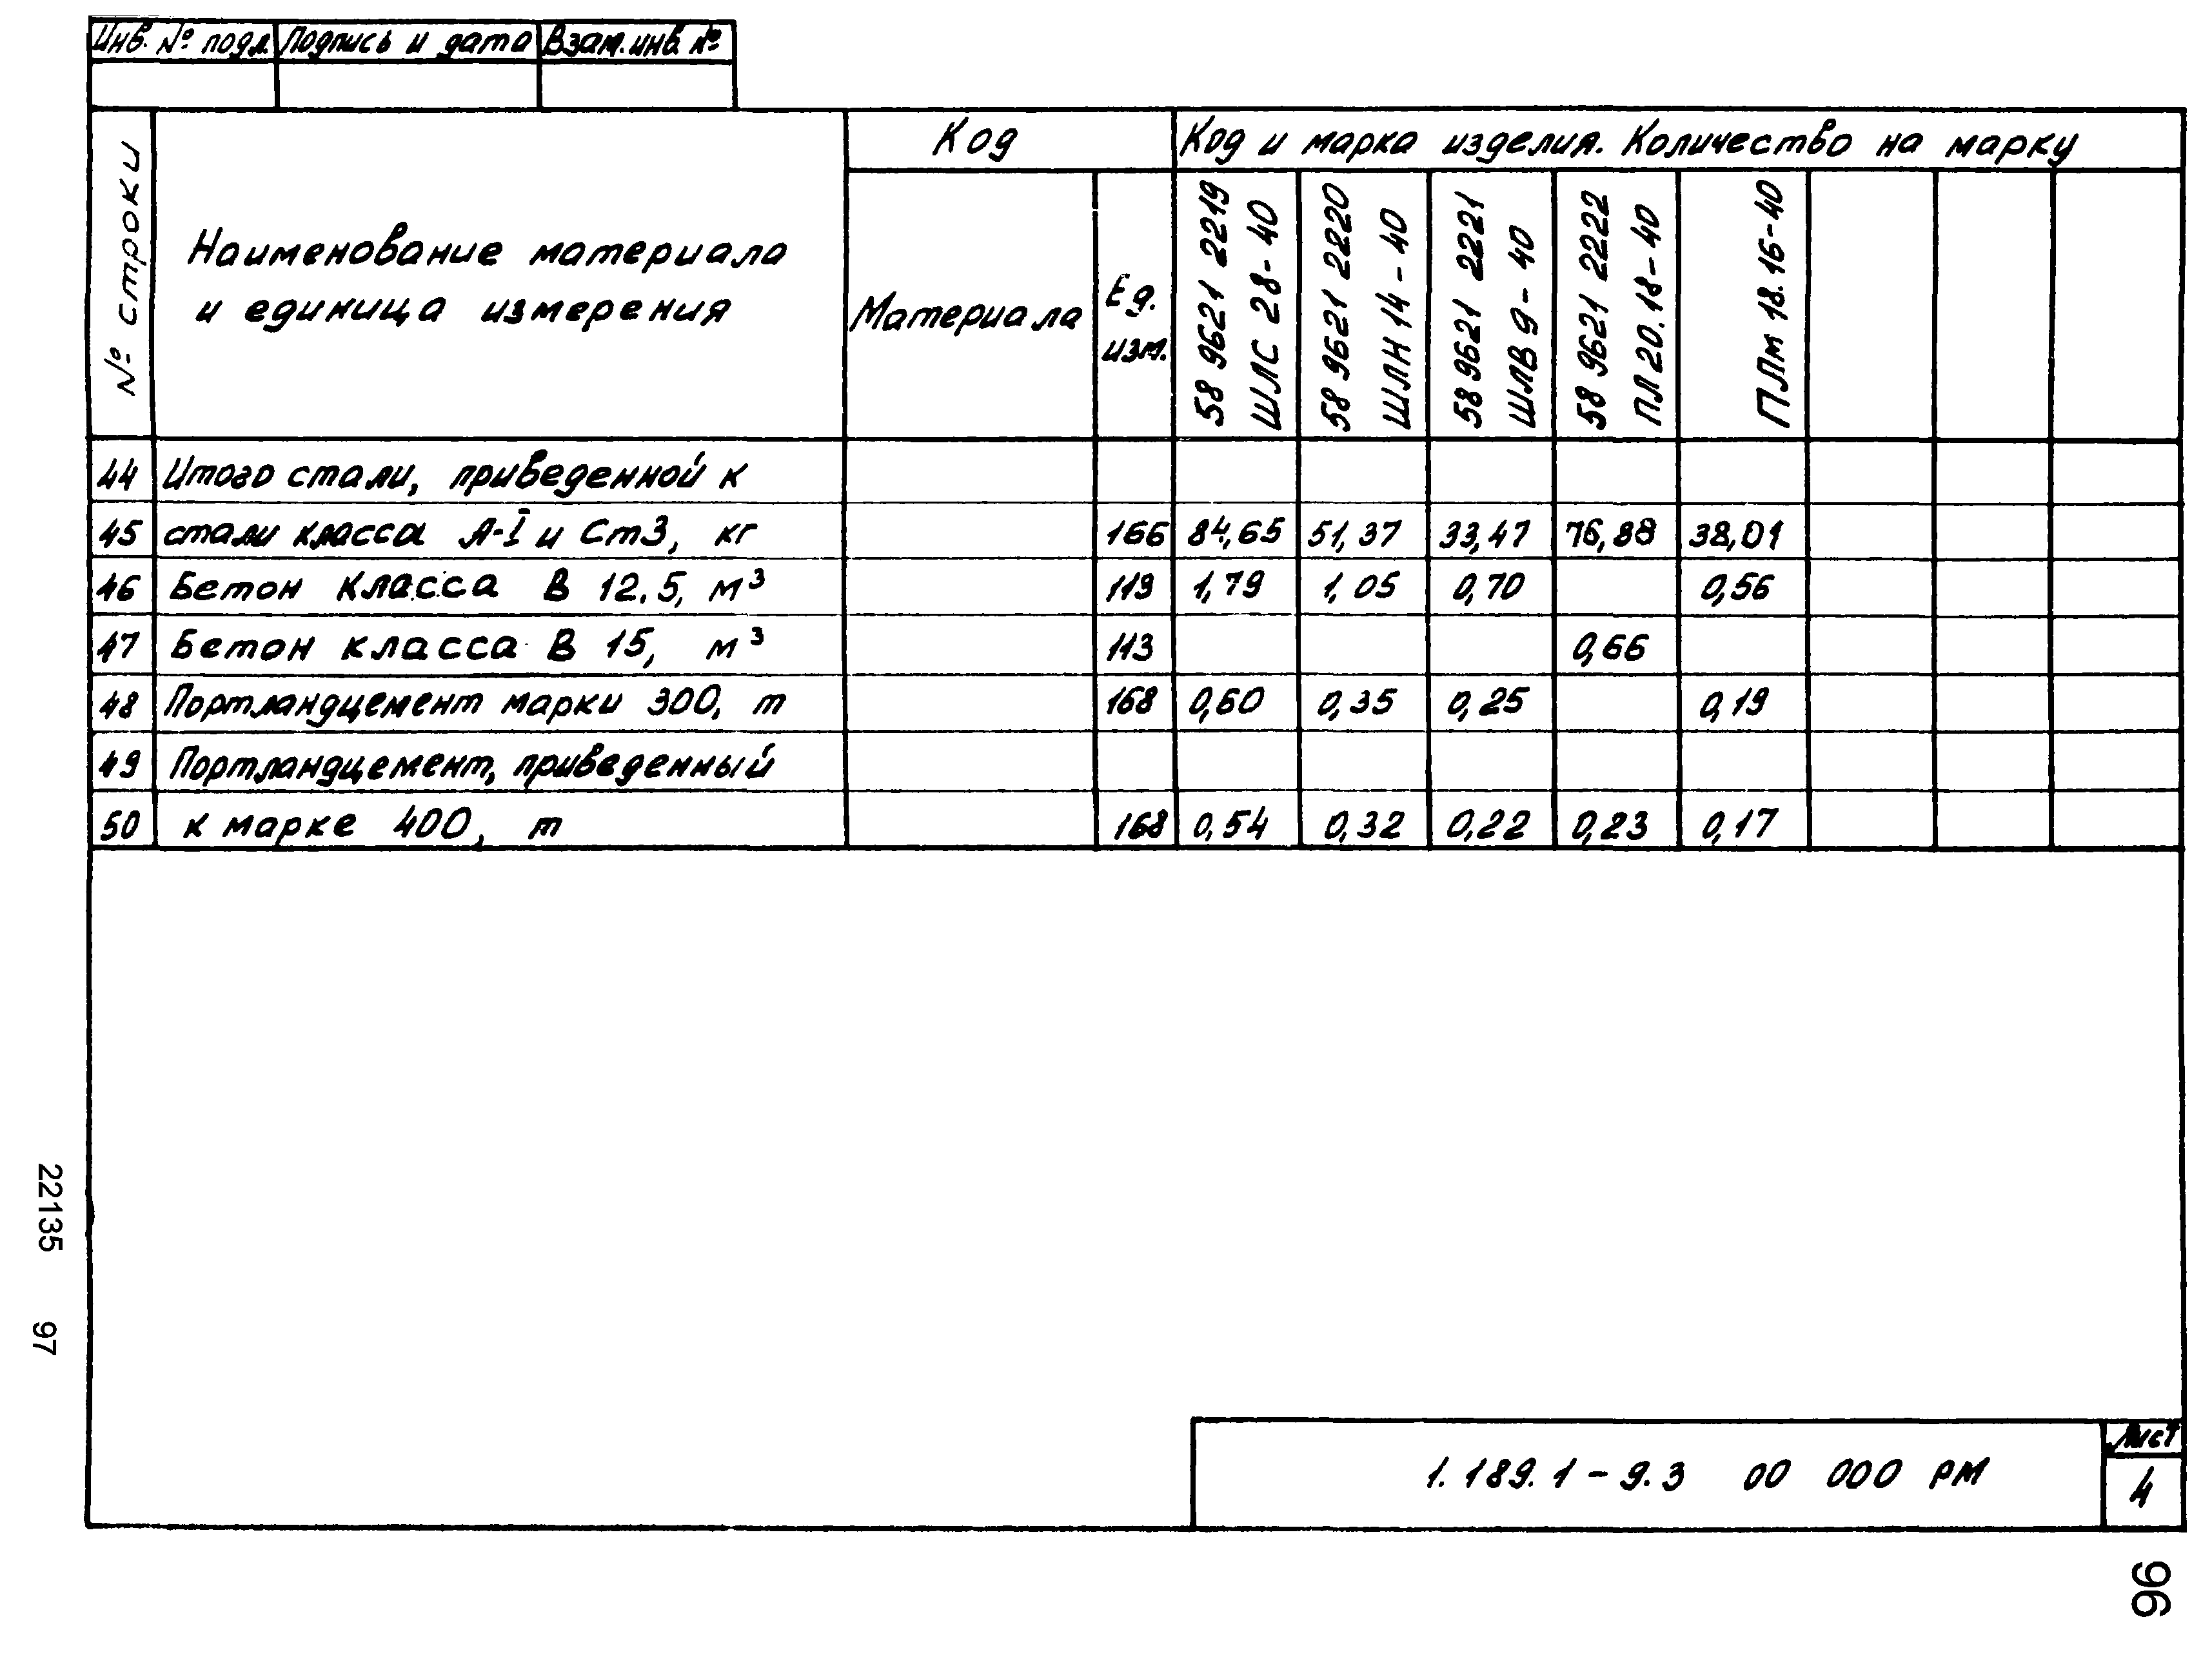 Инв. № подл. Подпись и дата Взам. инв. №
№ строки
Наименование материала
и единица измерения
Код
Материала
Ед.
изм.
Код и марка изделия. Количество на марку
58 9621 2219
ШЛС 28-40
58 9621 2220
ШЛН 14-40
58 9621 2221
ШЛВ 9-40
58 9621 2222
ПЛ 20.18-40
ПЛм 18.16-40
44 Итого стали, приведенной к
45 стали класса А-I и Ст3, кг 166 84,65 51,37 33,47 76,88 38,01
46 Бетон класса В 12.5, м³ 113 1,79 1,05 0,70 0,56
47 Бетон класса В 15, м³ 113 0,66
48 Портландцемент марки 300, т 168 0,60 0,35 0,25 0,19
49 Портландцемент, приведенный
50 к марке 400, т 168 0,54 0,32 0,22 0,23 0,17
22135 97
1.189.1-9.3 00 000 РМ
Лист
4
96